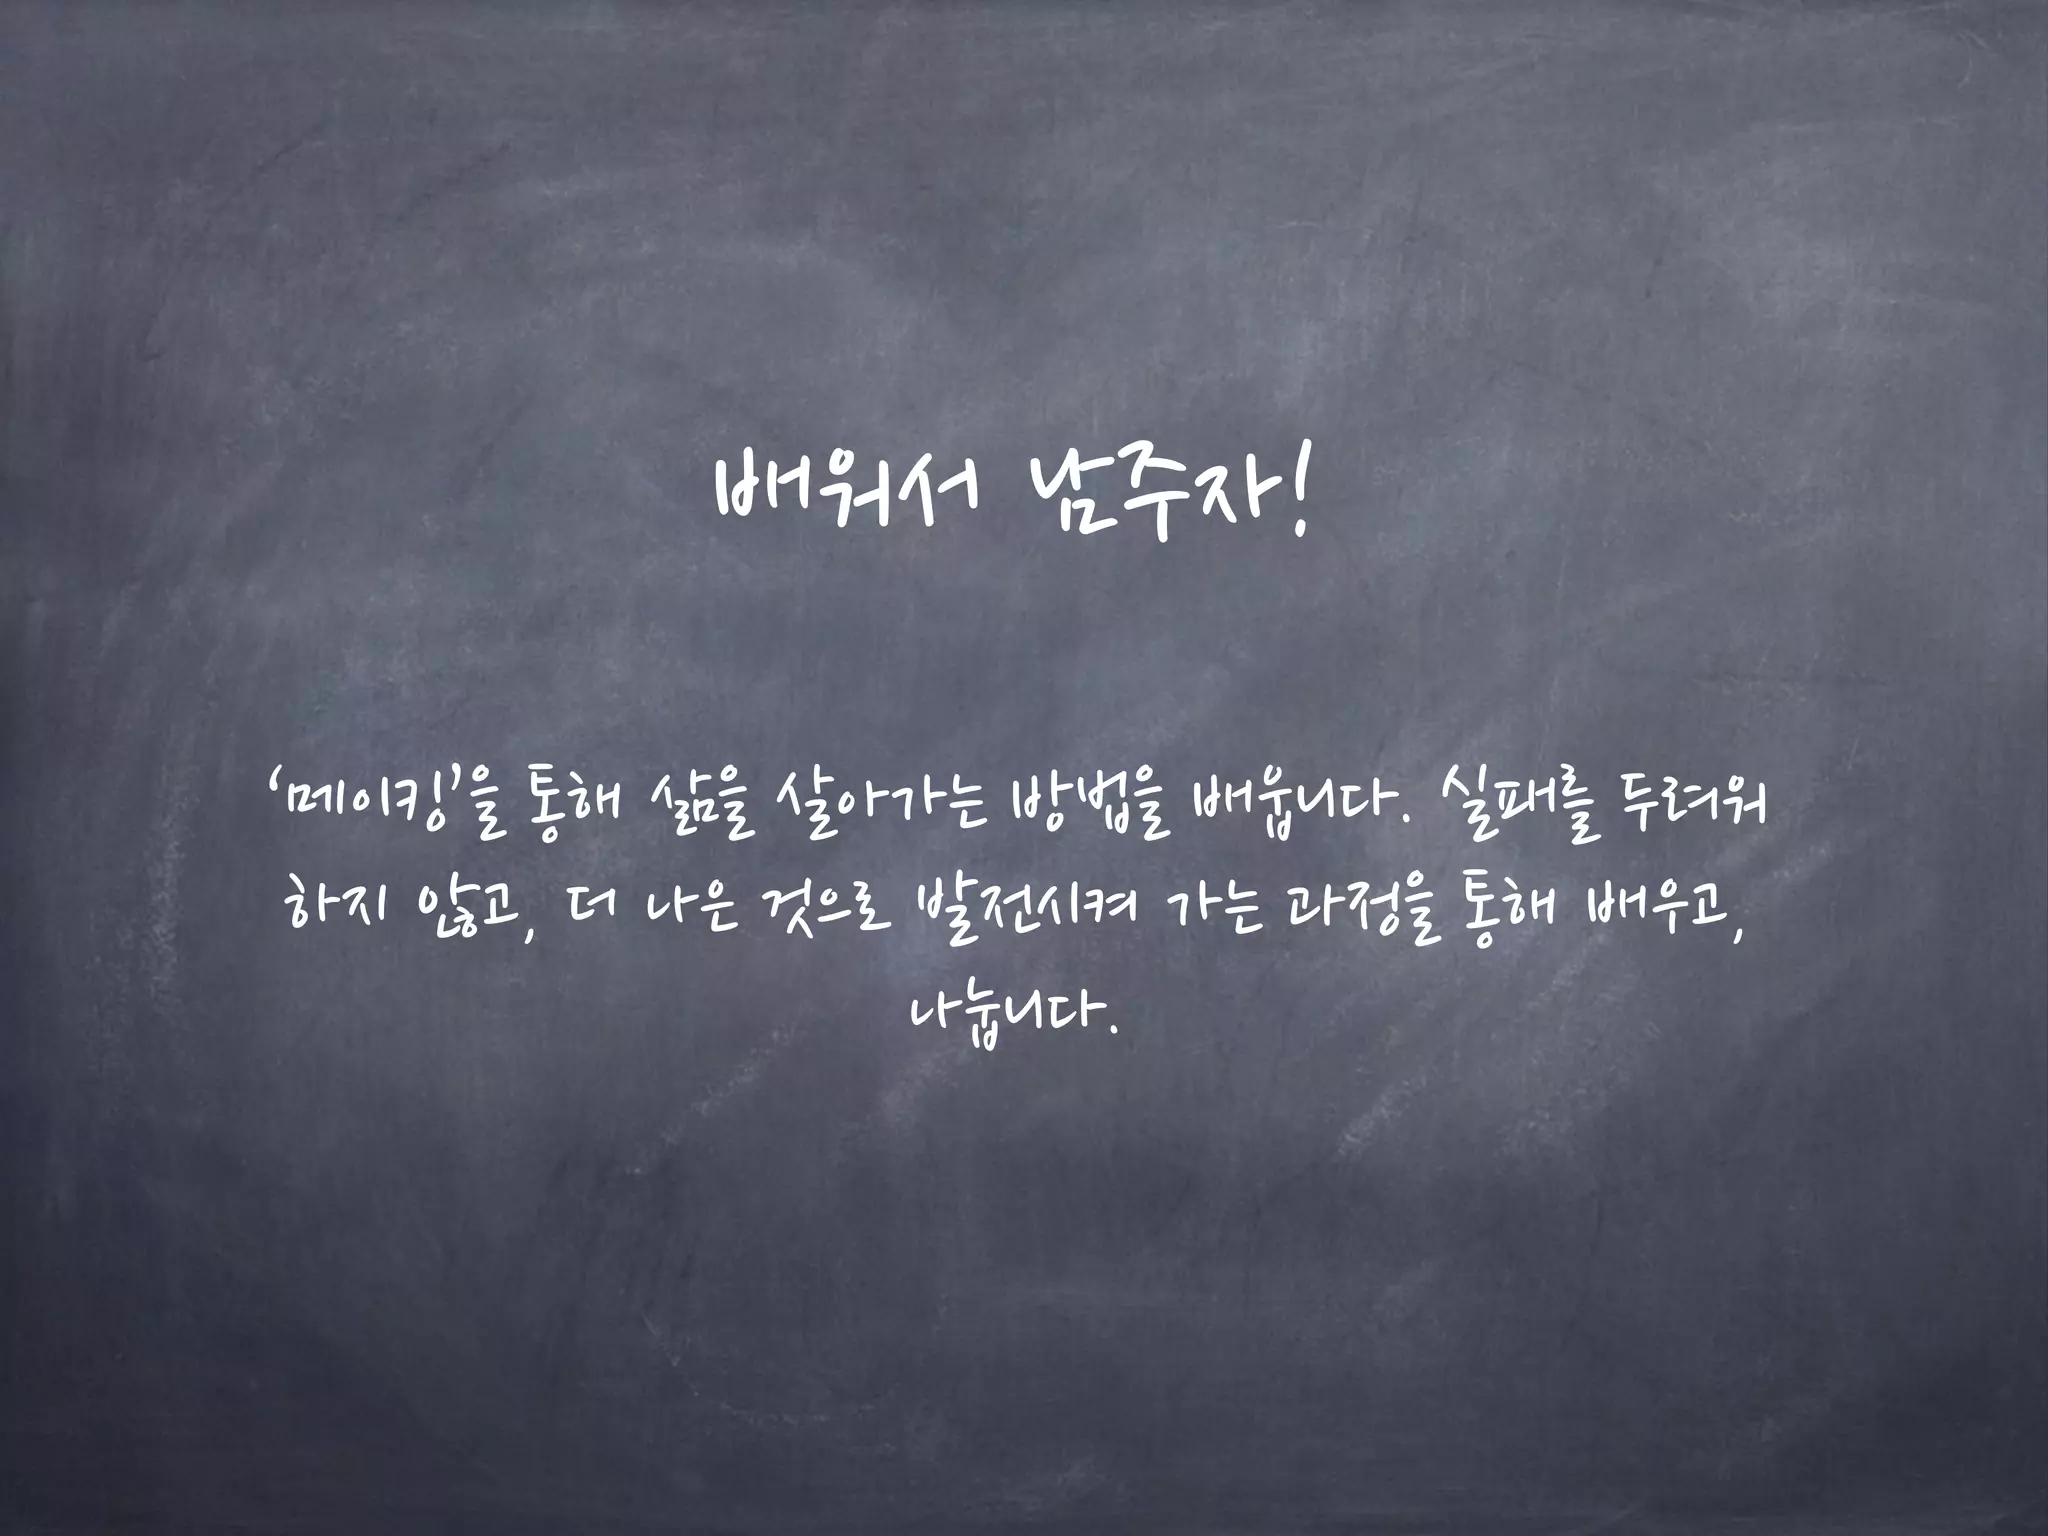 배워서 남주자!
‘메이킹’을 통해 삶을 살아가는 방법을 배웁니다. 실패를 두려워
하지 않고, 더 나은 것으로 발전시켜 가는 과정을 통해 배우고,
나눕니다.